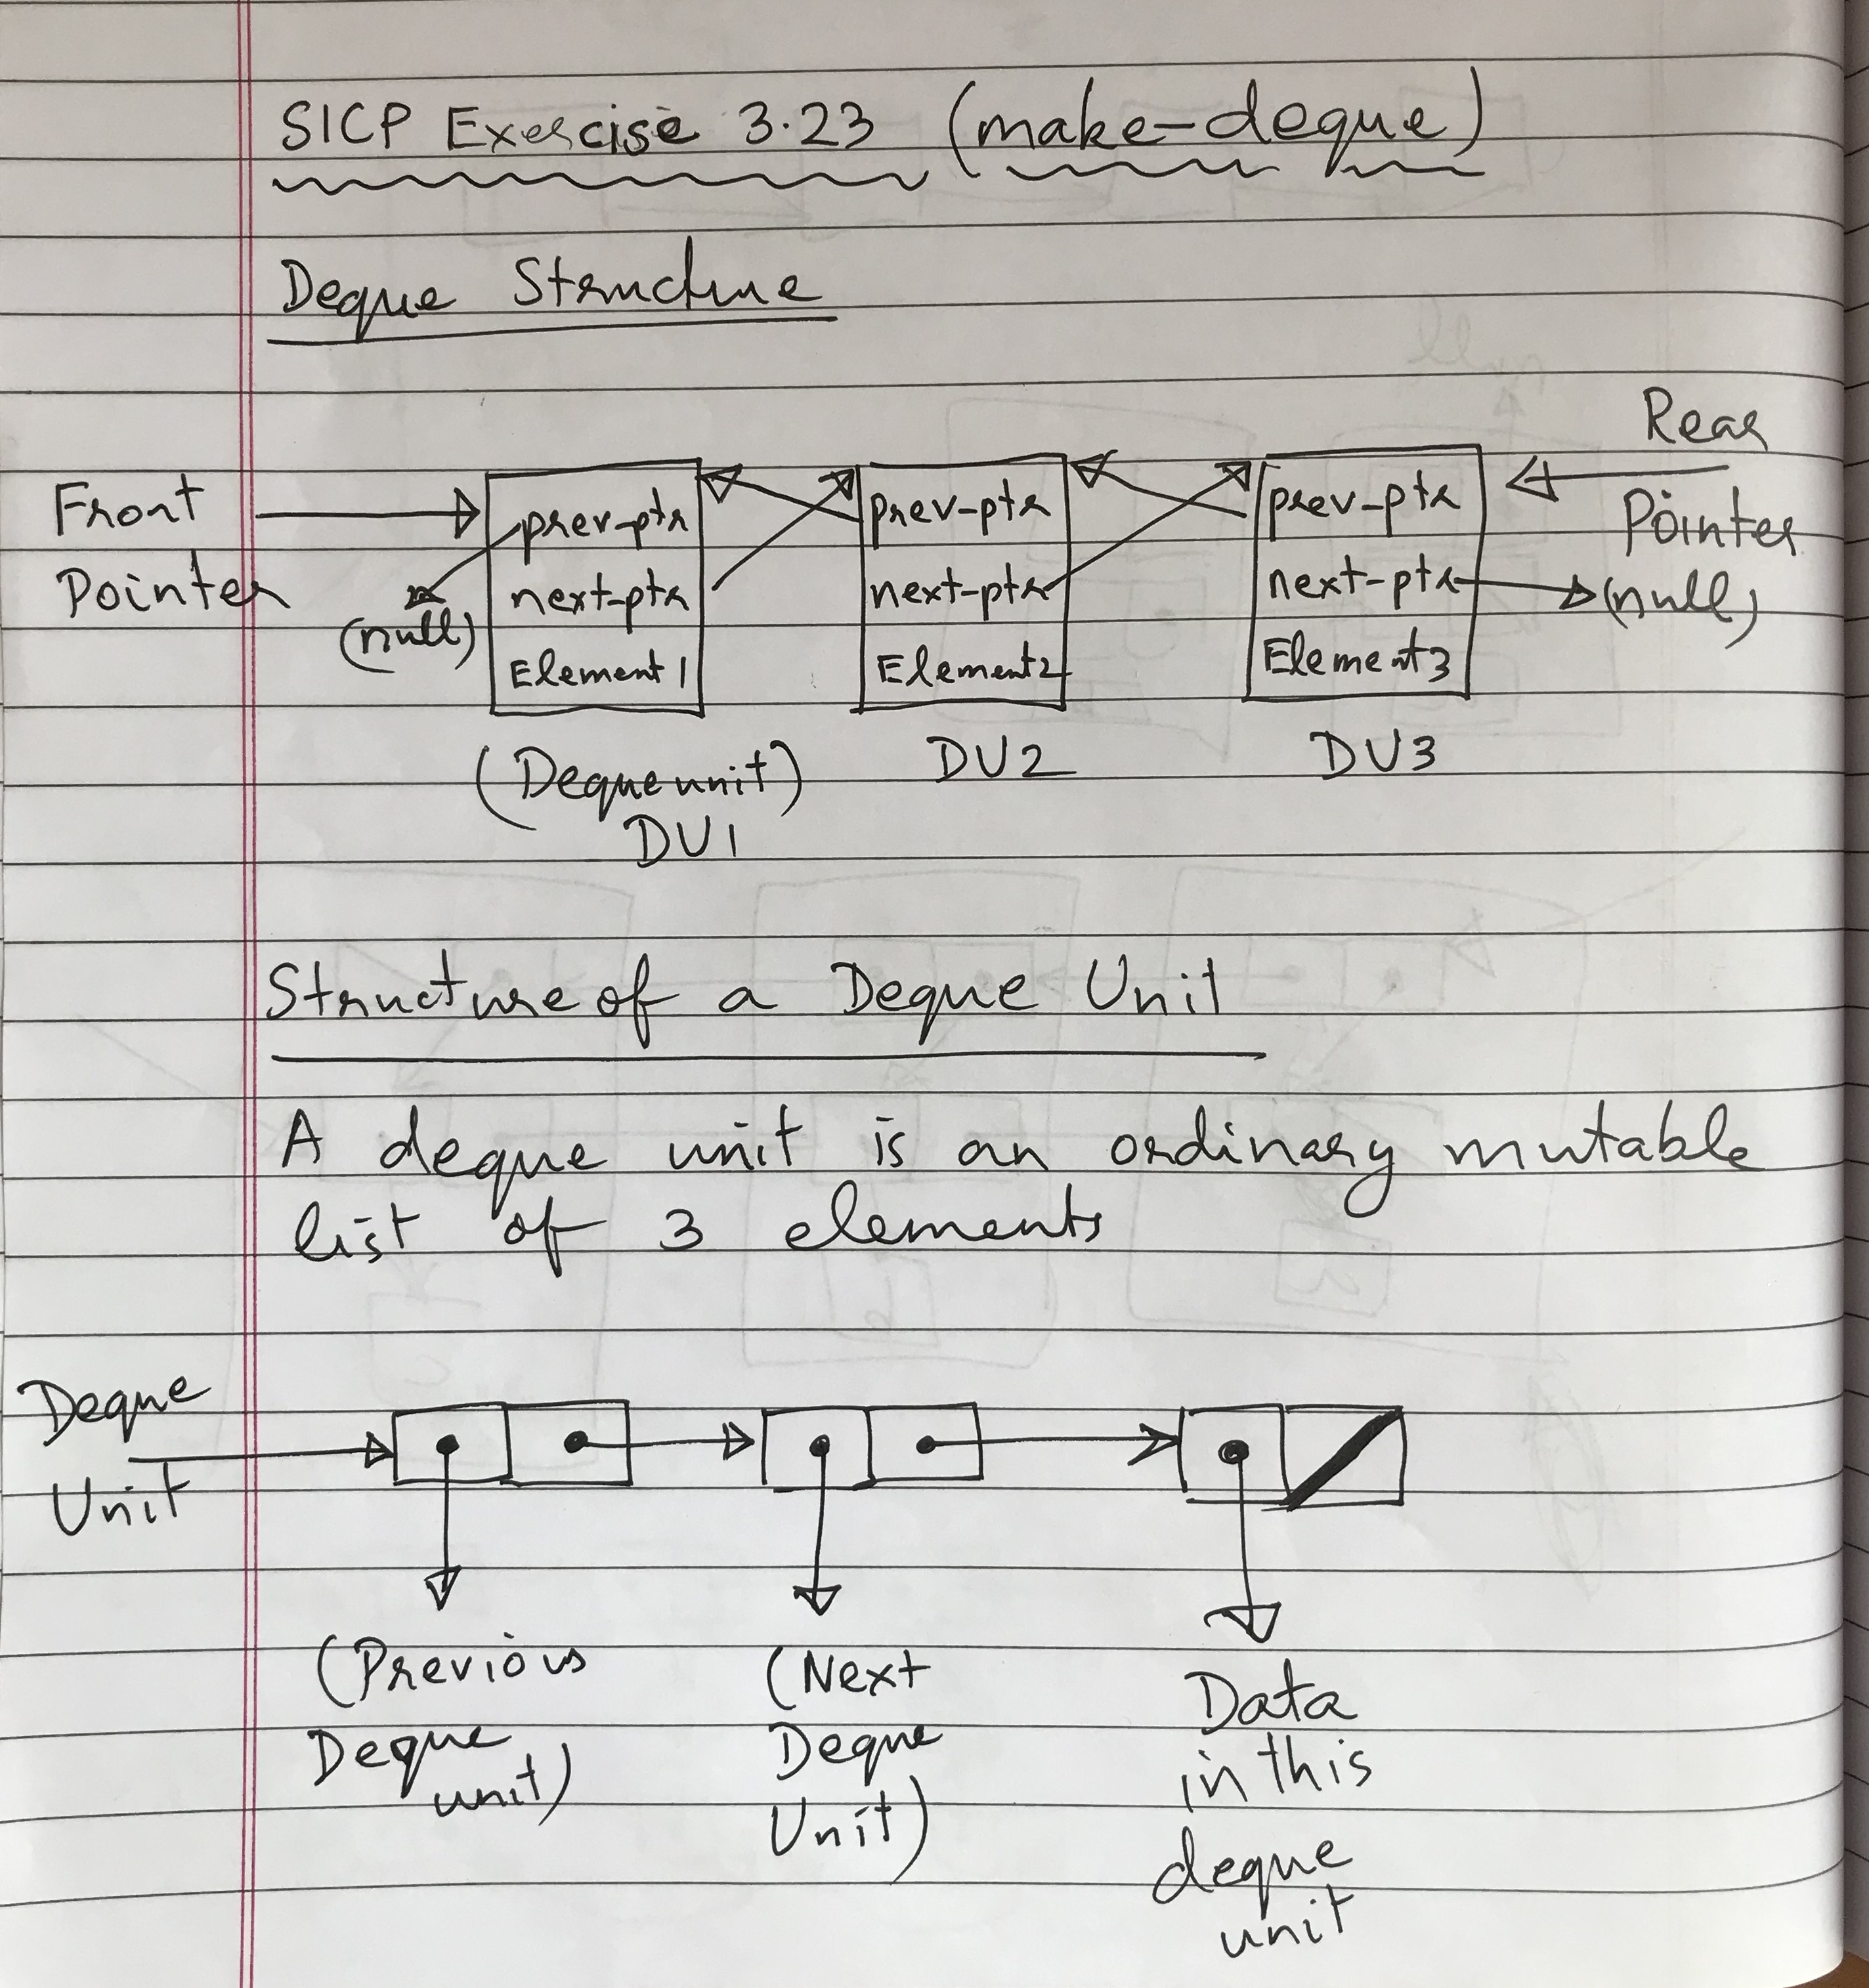 SICP Exercise 3.23 (make-deque)
Deque Structure
Front
Pointer
(null)
prev-ptr
next-ptr
Element1
(Deque unit)
DU1
prev-ptr
next-ptr
Element2
DU2
prev-ptr
next-ptr
Element3
DU3
Rear
Pointer
(null)
Structure of a Deque Unit
A deque unit is an ordinary mutable
list of 3 elements
Deque
Unit
(Previous
Deque
unit)
(Next
Deque
Unit)
Data
in this
deque
unit